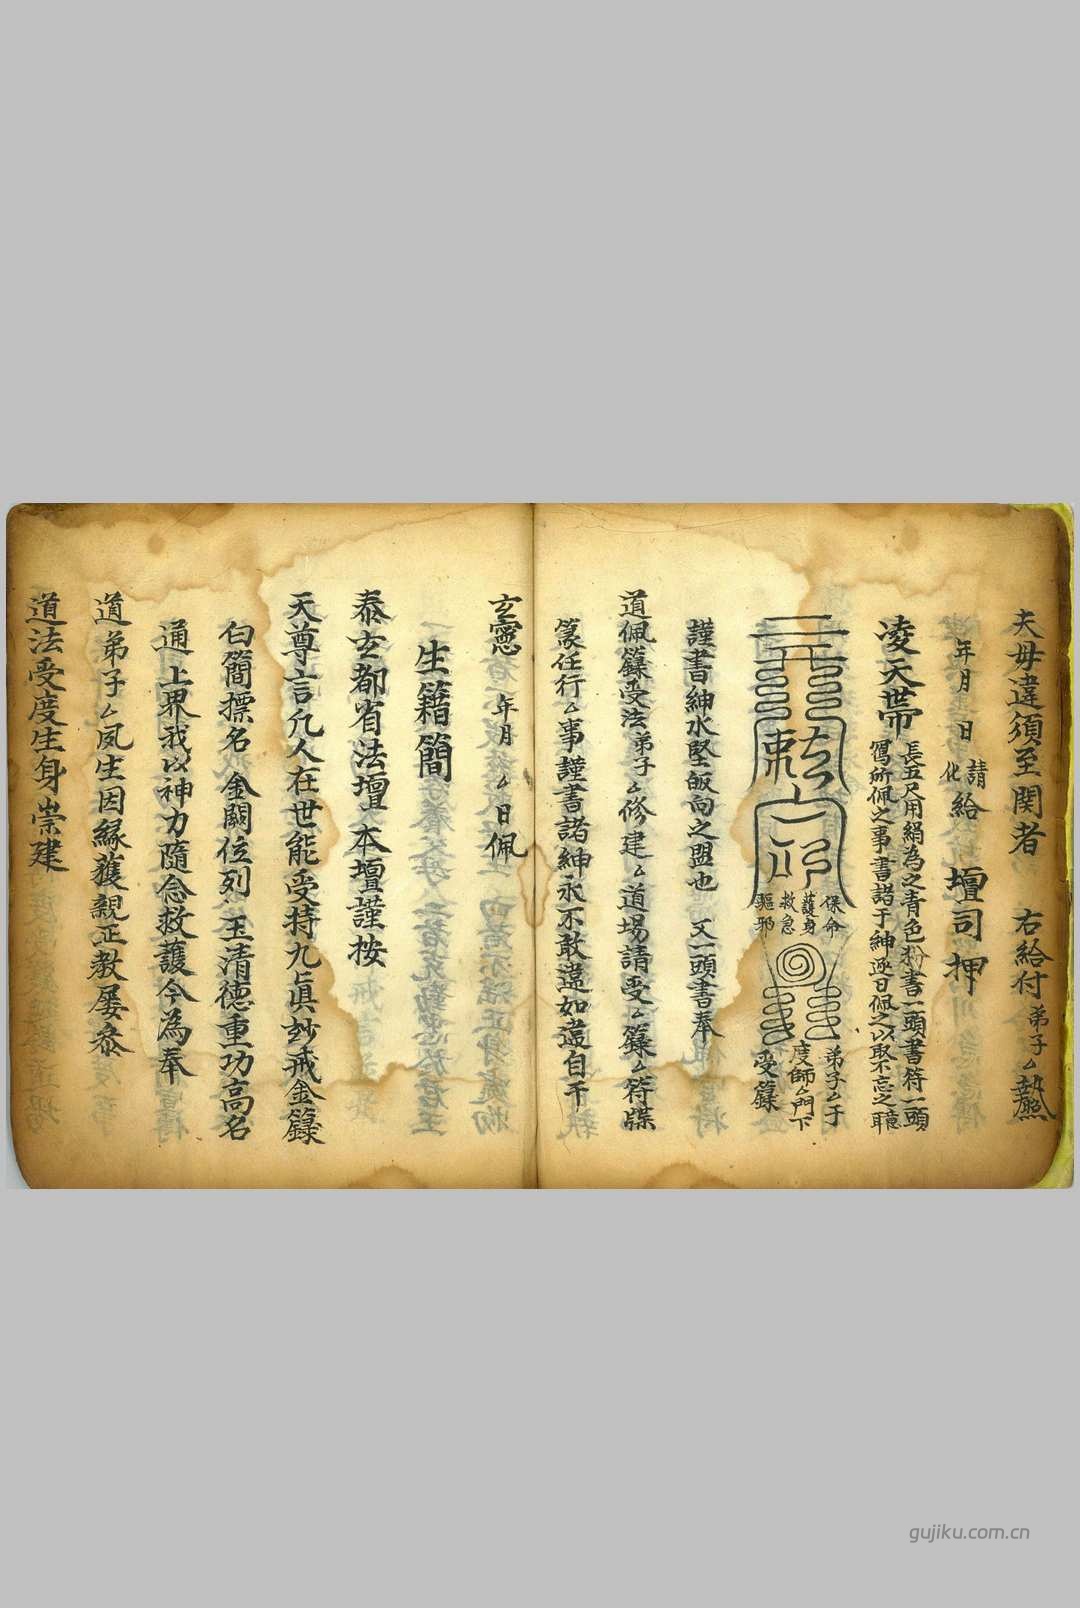 夫毋違須至関者　右給付弟子厶
年月　日請給　壇司押
化
凌天帶
長五尺用絹為之青色粉書一頭書符一頭
寫所佩之事書諸于紳逐日佩之以取不忘之
敕
保命
護身
救急
驅邪
弟子厶于
度師厶門下
受籙
謹書紳永堅皈向之盟也　又一頭書奉
道佩籙受法弟子厶修建厶道場請受厶籙厶符牒
篆任行厶事謹書諸紳永不敢違如違自干
玄憲　年月厶日佩
生籍簡
泰玄都省法壇　本壇謹按
天尊言凡人在世能受持九真妙戒金籙
白簡摽名　金闕位列　玉清德重功高名
通上界我以神力隨念救護今為奉
道弟子厶夙生因緣獲親正教屢叅
道法受度生身崇建
gujiku.com.cn